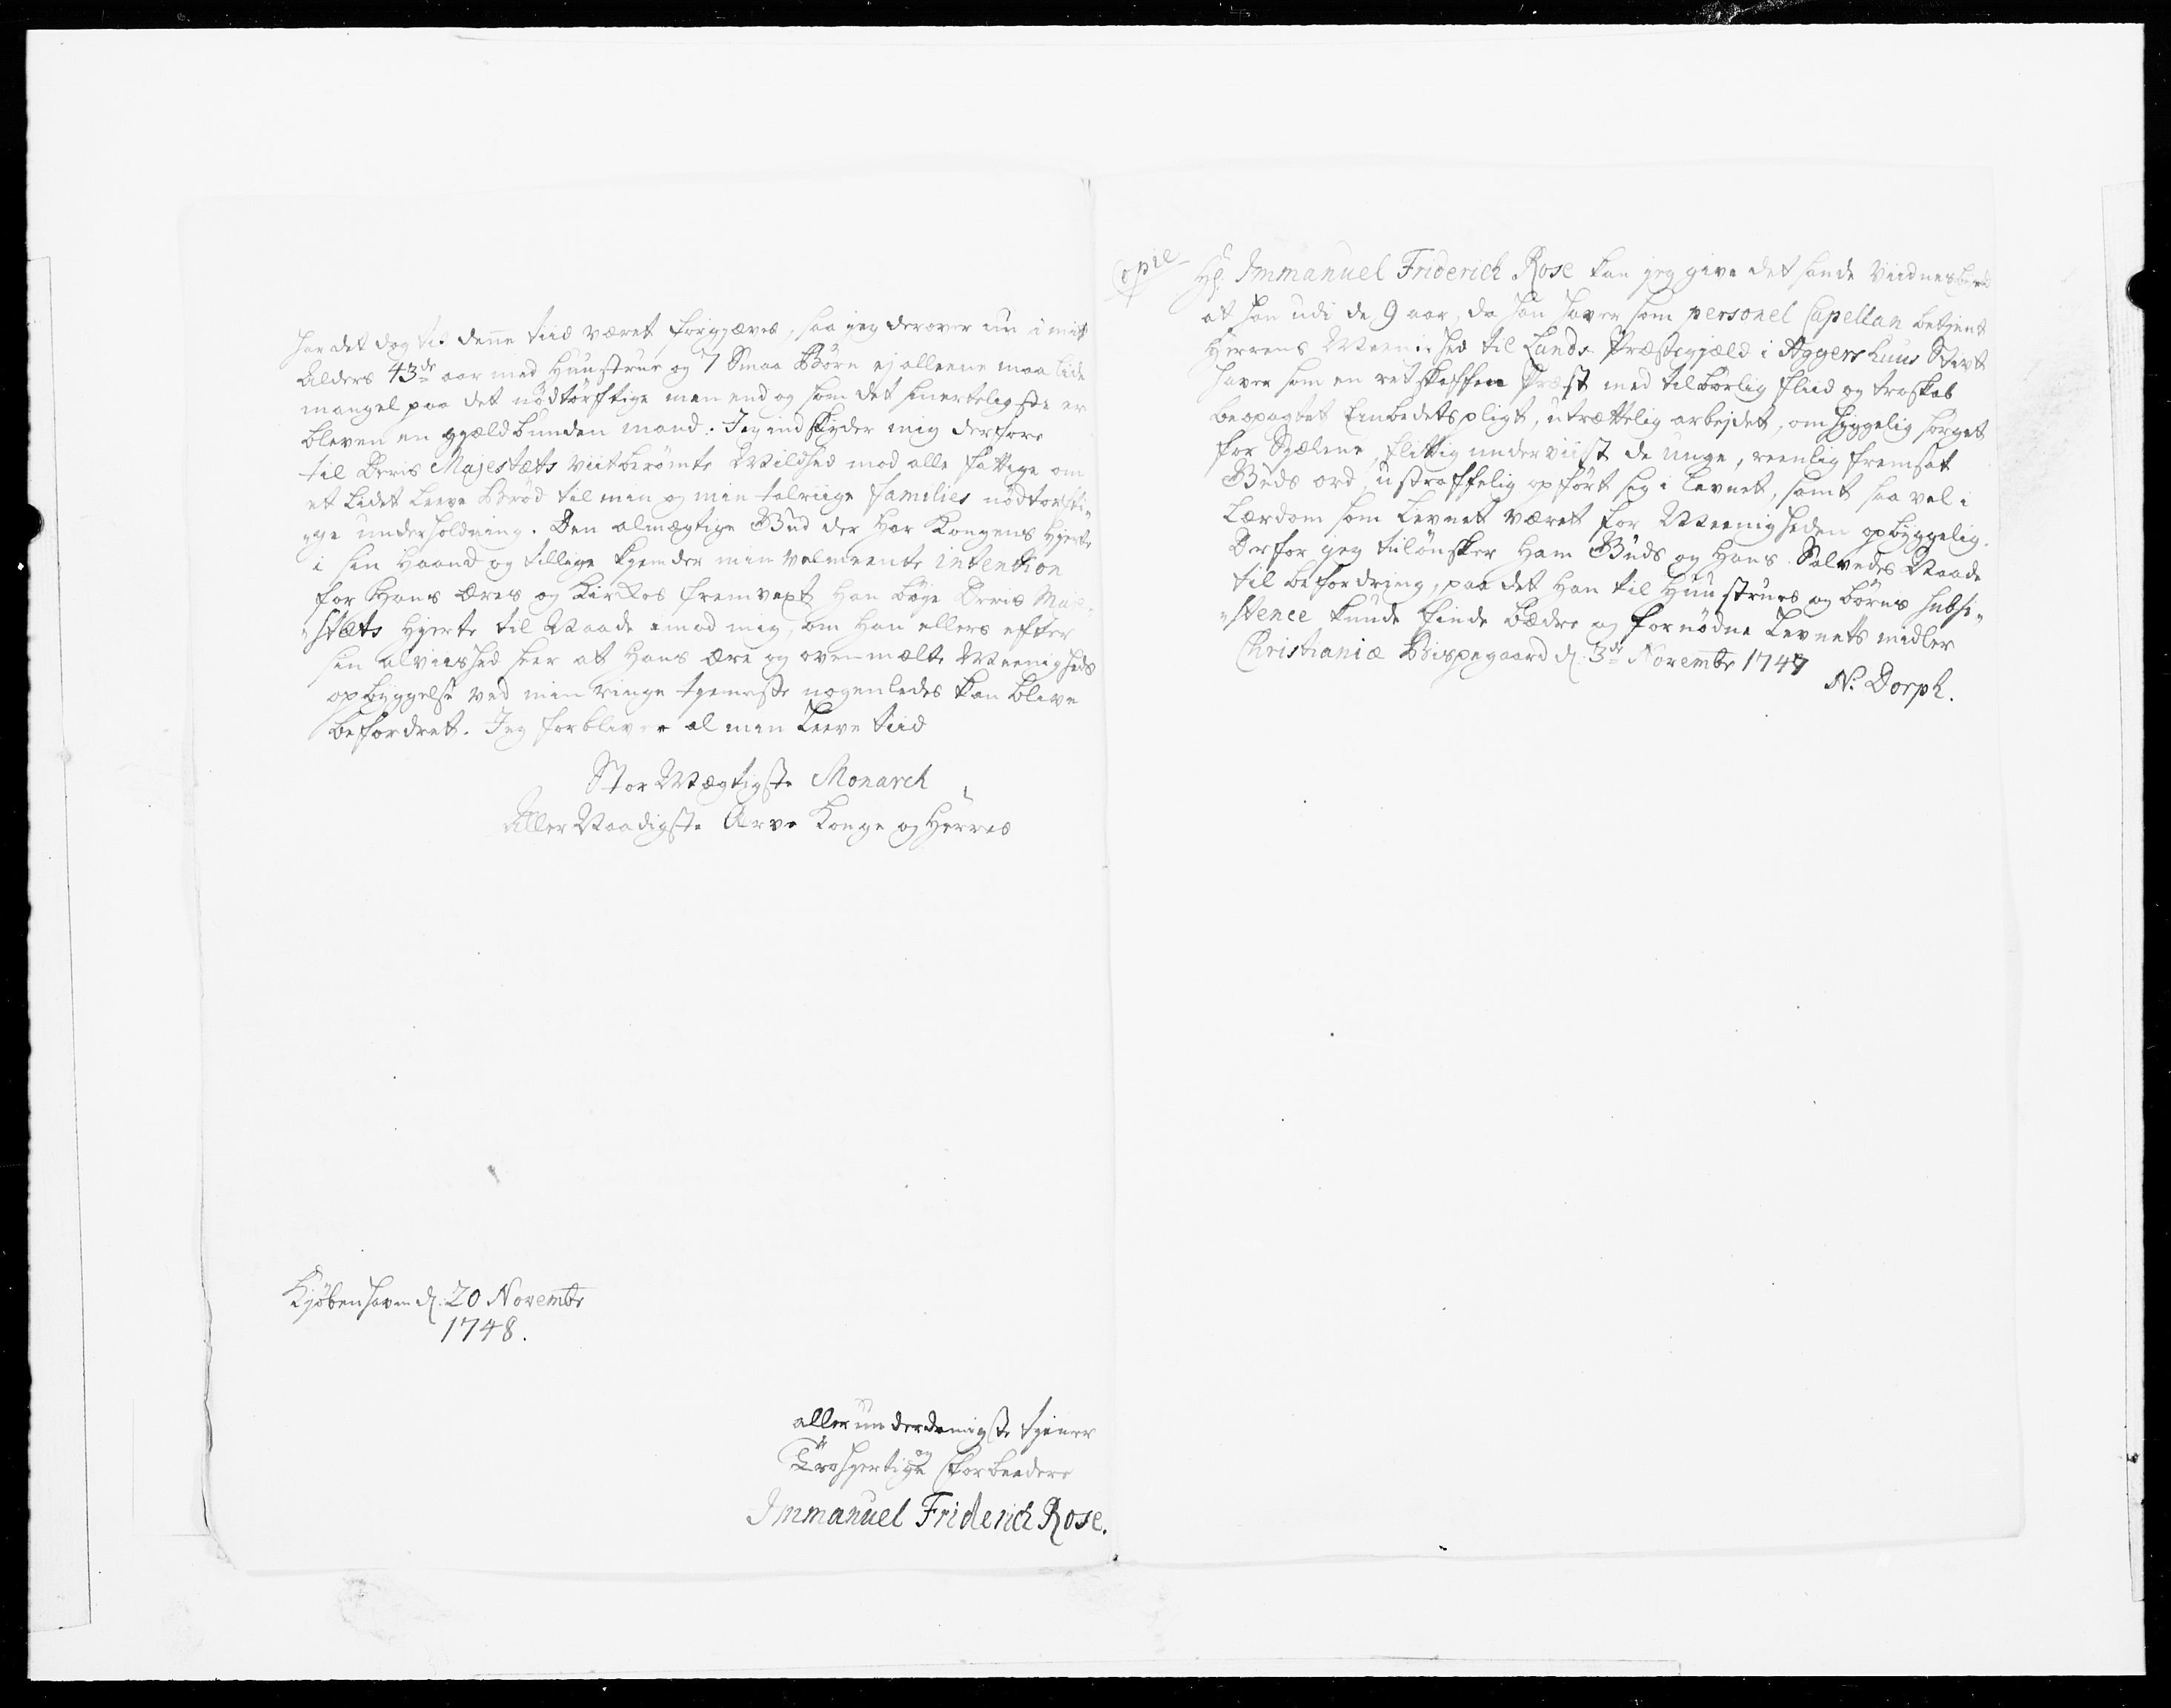 har det dog til denne tiid været forgjæves, saa jeg derover nu i mit
Alders 43de aar med Huustrue og 7 Smaa Børn ej alleene maa lide
mangel paa det nødtørftige men end og som det smerteligste er
bleven en gjældbunden mand. Jeg indskyder mig derfore
til Deris Majestæts viitberømte Mildhed mod alle fattige om
et lidet Leve Brød til min og min talriige Families nødtørfti„
„ge underholdning. Den almægtige Gud der har Kongens Hjerte
i sin Haand og tillige kjender min velmeente intention
for Hans Æres og Kirkes fremvext han bøye Deris Maje„
„stæts Hjerte til Naade imod mig, om han ellers efter
sin alviished seer at Hans Ære og ovenmælte Meenigheds
opbyggelse ved min ringe tjeneste nogenledes kan blive
befordret. Jeg forbliver al min Leve tiid
Stor Mægtigste Monarch
Aller Naadigste Arve Konge og Herres
Kjøbenhaven d. 20 Novembr
1748.
allerunderdanigste tjener
og
Troehjertige Forbeedere
Immanuel Friderich Rose.
Copie
Hr. Immanuel Friderich Rose kan jeg give det sande Viidnesbyrd
at han udi de 9 aar, da han haver som personel Capellan betjent
Herrens Meenighed til Lands Præstegjæld i Aggershuus Stift
haver som en retskaffen Præst med tilbørlig fliid og troskab
beopagtet Embedets pligt, utrættelig arbejdet, omhyggelig sørget
for Sjælene, flittig underviist de unge, reenlig fremsat
Guds ord, ustraffelig opført sig i levnet, samt saa vel i
Lærdom som Levnet været for Meenigheden opbyggelig.
Derfor jeg tilønsker Ham Guds og Hans Salvedes Naade
til befordring, paa det Han til Huustrues og børns subsi„
„stence kunde finde bædre og fornødne Levnets midler
Christianiæ Bispegaard d. 3de Novembr 1747
N. Dorph.